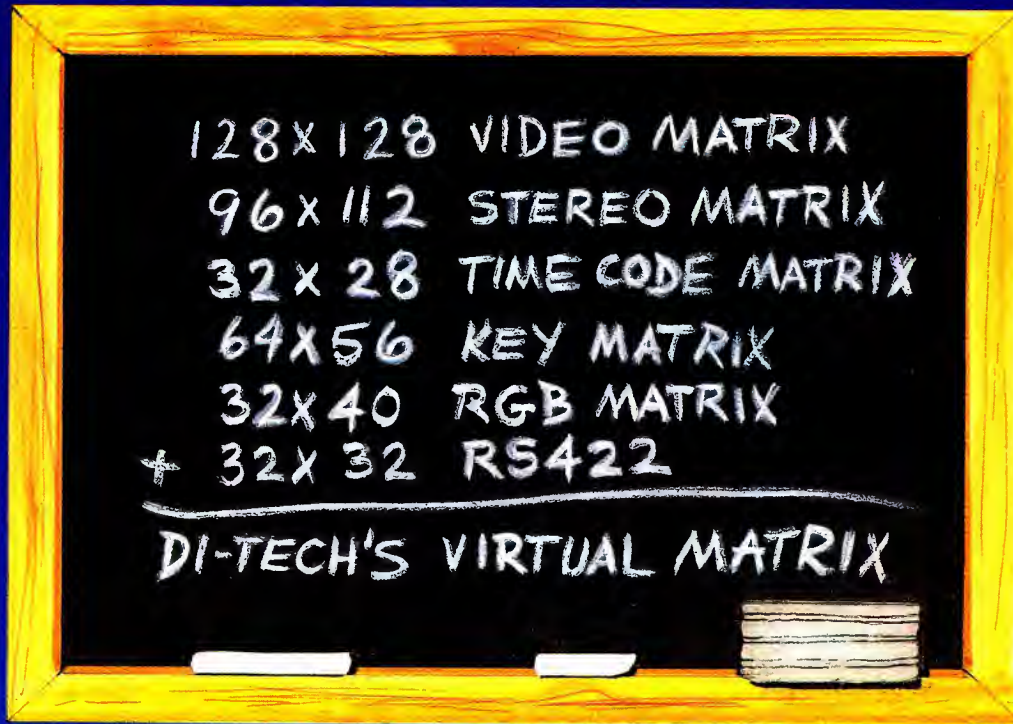 128X128 VIDEO MATRIX
96X112 STEREO MATRIX
32X28 TIME CODE MATRIX
64X56 KEY MATRIX
32X40 RGB MATRIX
+ 32X32 RS422
DI-TECH'S VIRTUAL MATRIX